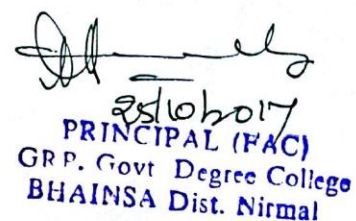 25/10/2017
PRINCIPAL (FAC)
GRP. Govt Degree College
BHAINSA Dist. Nirmal